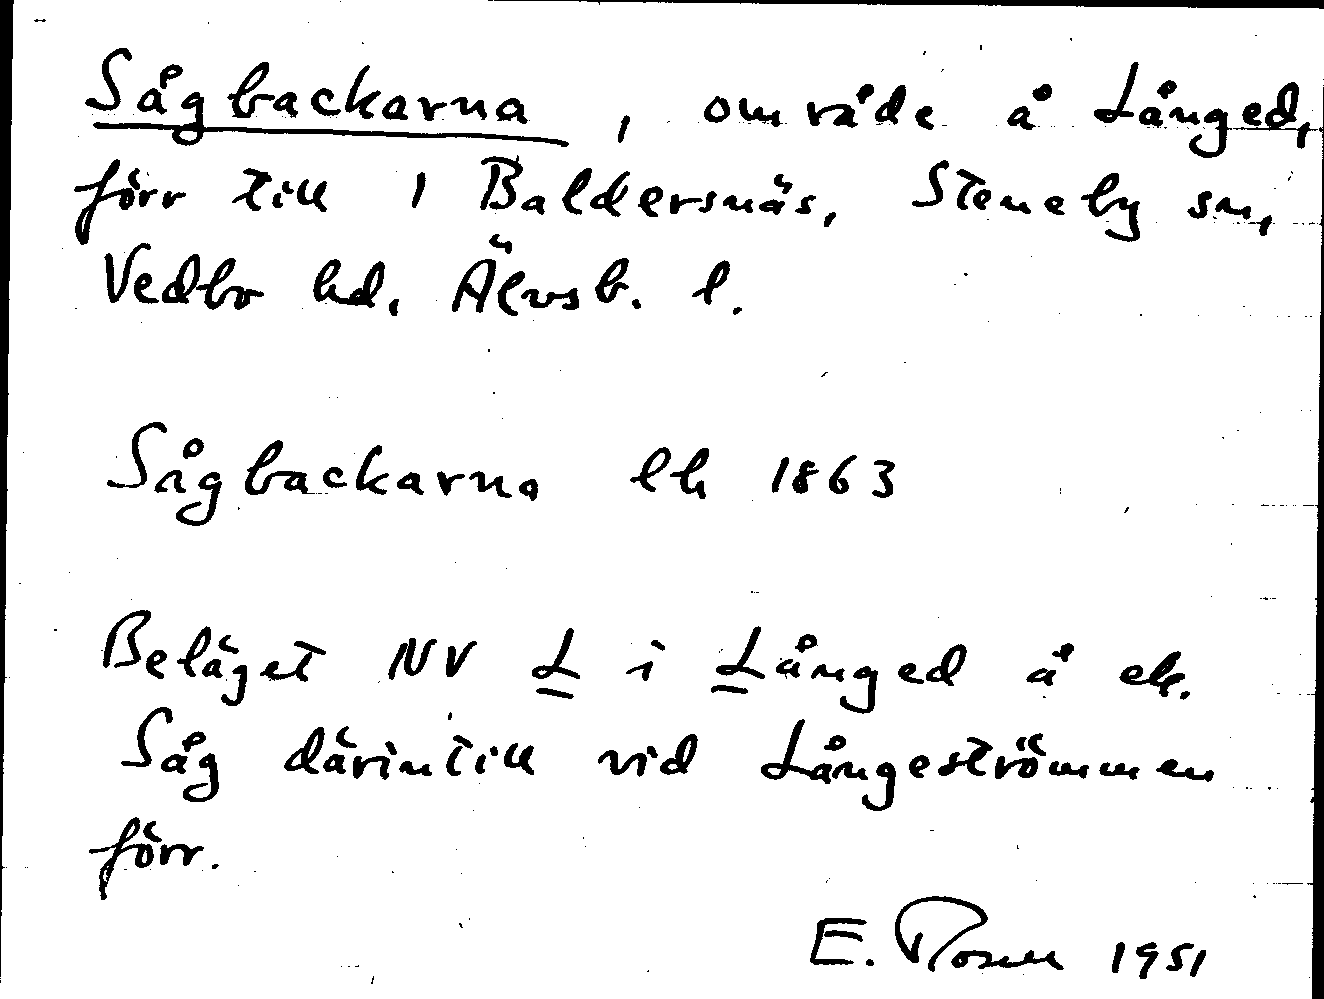 Sågbackarna, område å Långed,
förr till 1 Baldersnäs, Steneby sn,
Vedbo hd. Älvsb. l.
Sågbackarna lh 1863
Beläget NV L i Långed å ek.
Såg därintill vid Långeströmmen
förr.
E. Rosell 1951